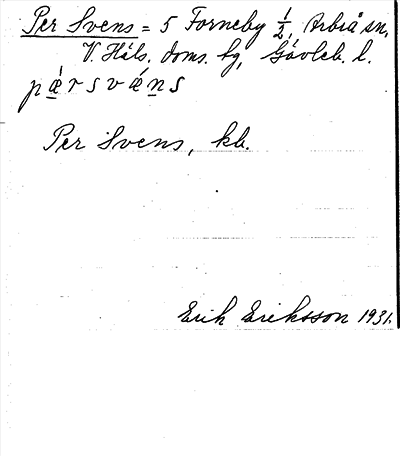 Per Svens = 5 Forneby 1/2, Arbrå sn,
V. Häls. doms. hg, Gävleb. l.
pǽrsvǽns
Per Svens, kb.
Erik Eriksson 1931.